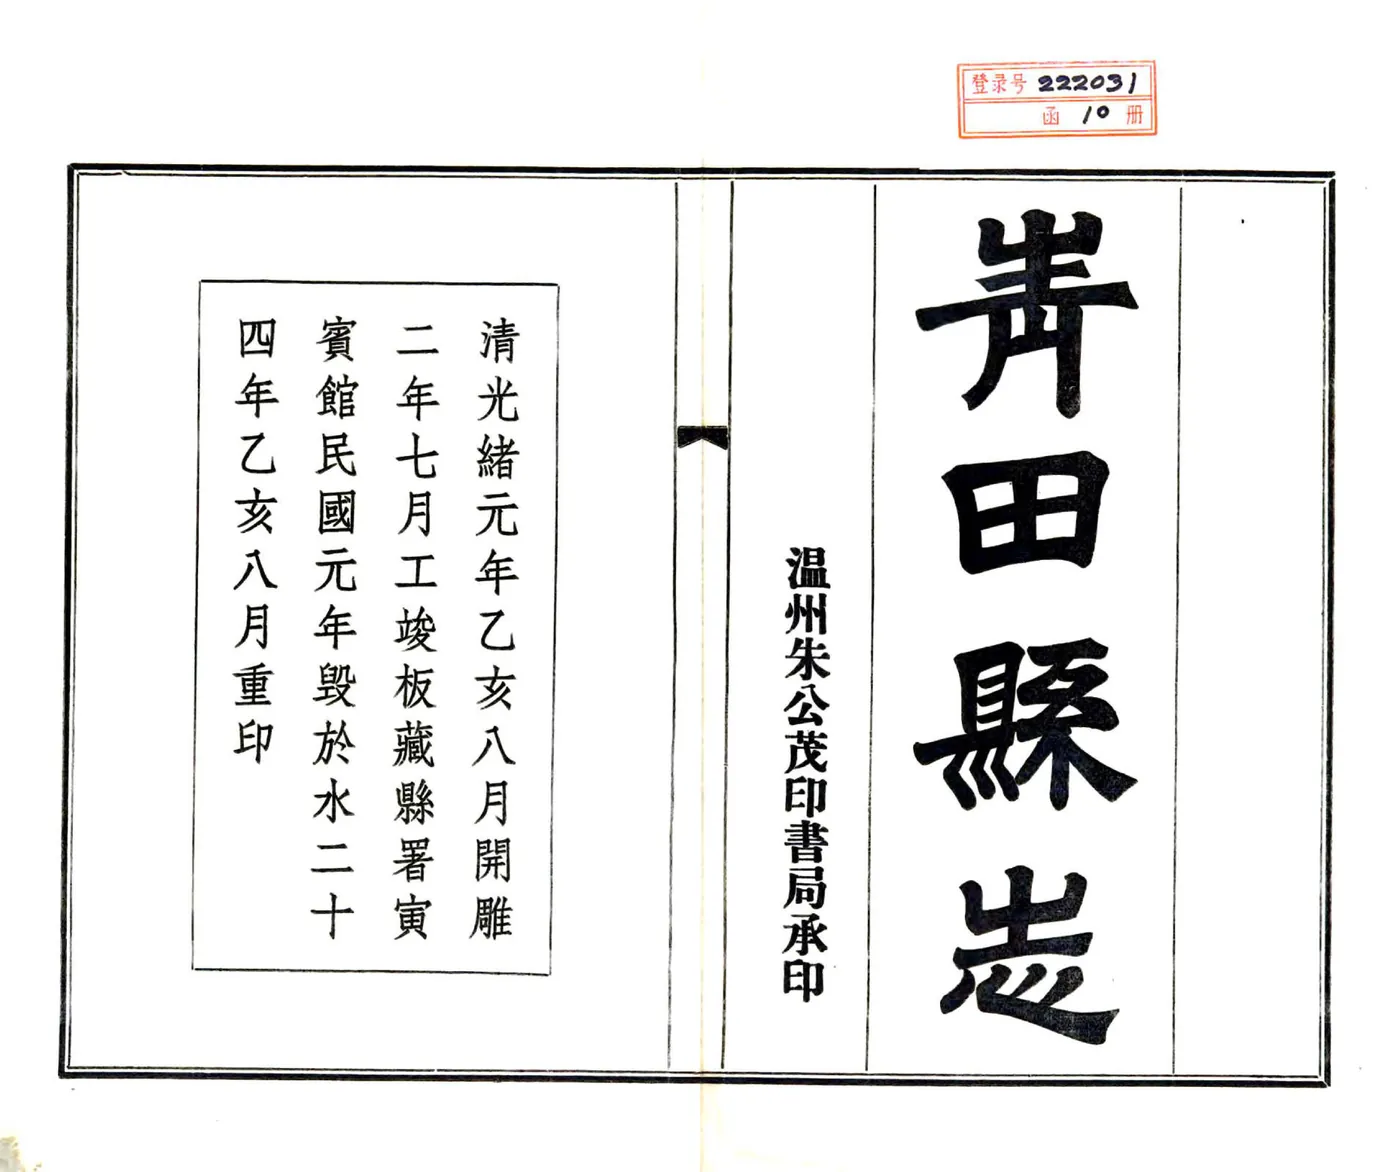 登录号 222031
函 10 册
青田縣志
温州朱公茂印書局承印
清光緒元年乙亥八月開雕
二年七月工竣板藏縣署寅
賓館民國元年毀於水二十
四年乙亥八月重印